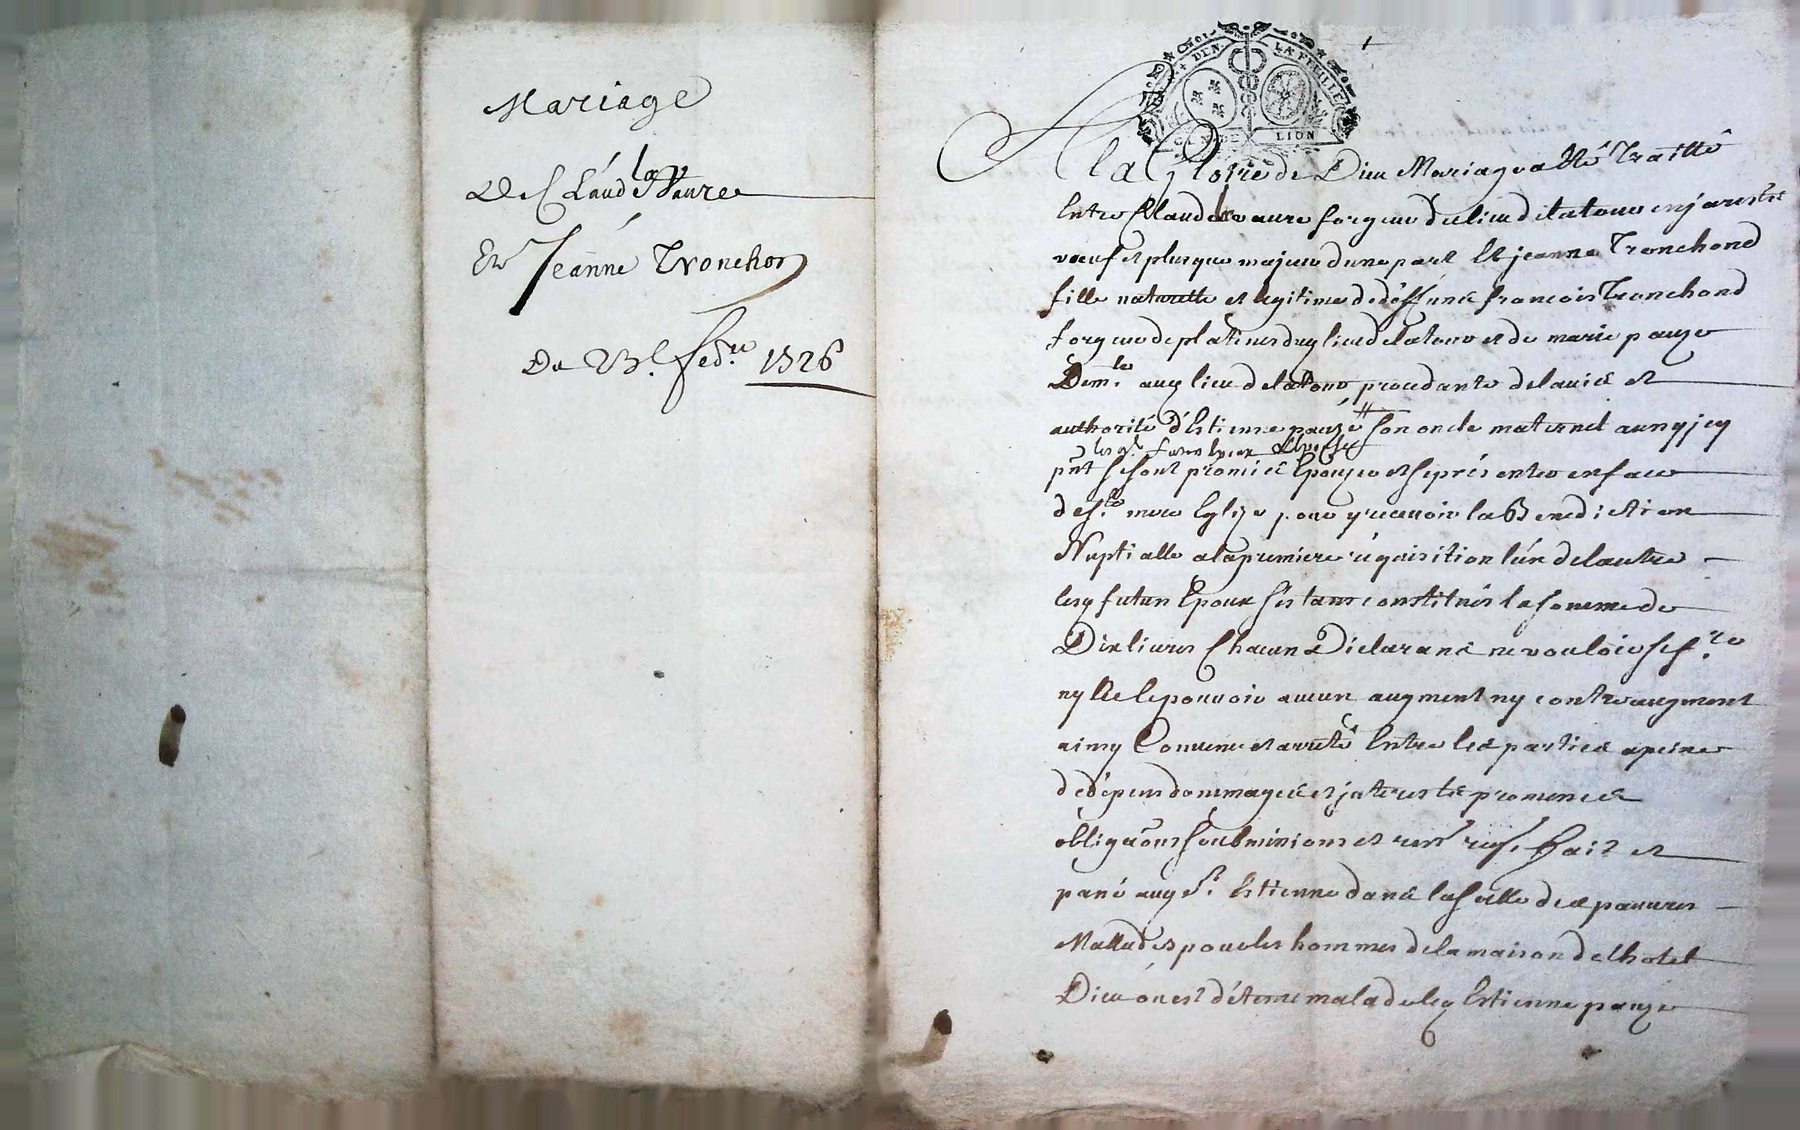 Mariage
De Claude la Vaure
Et Jeanne Tronchon
Du 23e fed.er 1726
DEN. LA FEUILLE
LION
A la Gloire de Dieu Mariage a êtté Traitté
Entre Claude la vaure forgeur du lieu de latour en jarestz
vœuf et plus que majeur dune part Et jeanne Tronchond
fille naturelle et legitime de deffunt francois Tronchond
forgeur de platines dug lieu de latour et de marie pauze
Dem.te aug lieu de latour procedante de lauis et
authorité d'Estienne pauzé son oncle maternel aung jcy
les d. futurs Epoux
pnt se sont promis Epouzer et se presenter en face
de s.te mere Eglize pour y recevoir la Benediction
Nuptialle a la premiere réquisition lun de lautre
lesq futurs Epoux sestans constitués la somme de
Dix livres Chacun Declarant ne vouloir
ny le pouvoir aucun augment ny contre augment
ainsy Convenu et arreté Entre les parties a peine
de dépens dommages et jnterests promesses
obligaons soubmissions et fait et
passé aug Estienne dans la salle des pauures
Mallades pour les hommes de la maison de lhotel
Dieu ou est détenu malade leq Estienne pauze